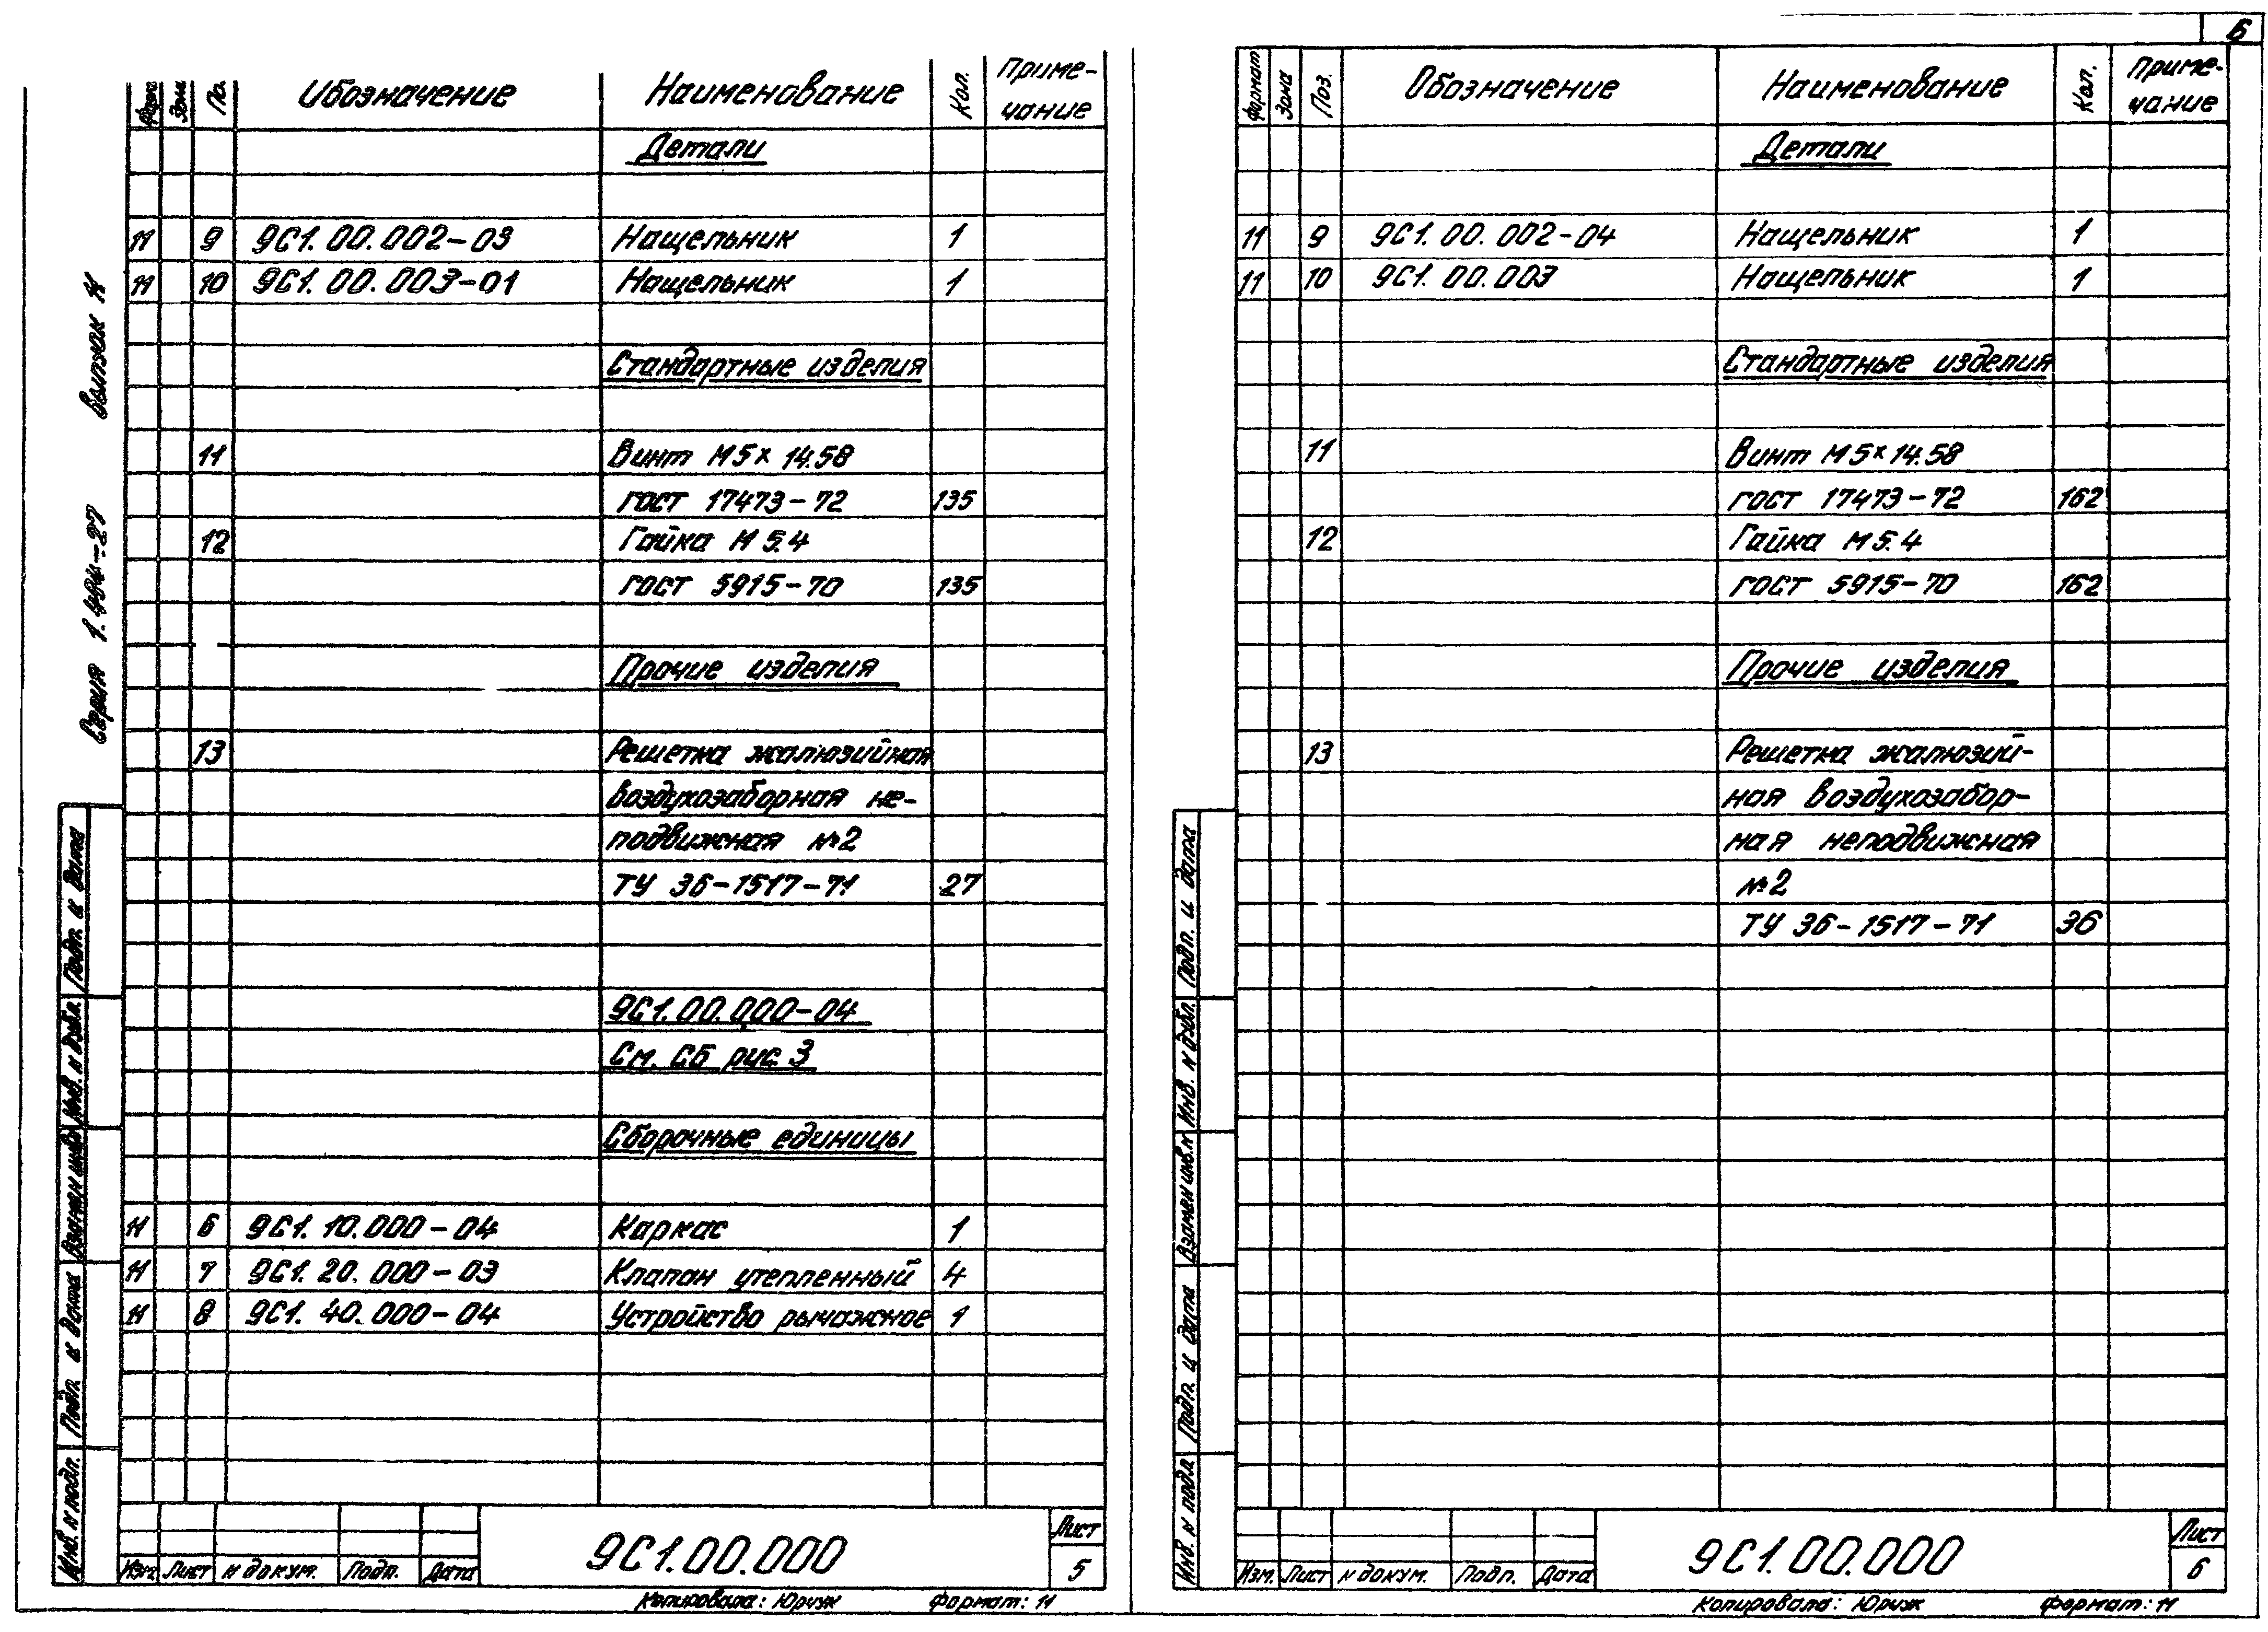 6
Серия 1.494-27 Выпуск
Зона Обозначение Наименование Кол. Приме-
чание
Детали
11 9 9С1.00.002-03 Нащельник 1
11 10 9С1.00.003-01 Нащельник 1
Стандартные изделия
11 Винт М5х14.58
ГОСТ 17473-72 135
12 Гайка М5.4
ГОСТ 5915-70 135
Прочие изделия
13 Решетка жалюзийная
воздухозаборная не-
подвижная №2
ТУ 36-1517-71 27
9С1.00.000-04
См. СБ рис 3
Сборочные единицы
11 6 9С1.10.000-04 Каркас 1
11 7 9С1.20.000-03 Клапан утепленный 4
11 8 9С1.40.000-04 Устройство рычажное 1
Инв. N подл. Подп. и дата Взамен инв.N Инв. N дубл. Подп. и дата
Изм. Лист N докум. Подп. Дата
9С1.00.000
Лист
5
Копировала: Юрчук Формат: 11
Формат Зона Поз. Обозначение Наименование Кол. Приме-
чание
Детали
11 9 9С1.00.002-04 Нащельник 1
11 10 9С1.00.003 Нащельник 1
Стандартные изделия
11 Винт М5х14.58
ГОСТ 17473-72 162
12 Гайка М5.4
ГОСТ 5915-70 162
Прочие изделия
13 Решетка жалюзий-
ная воздухозабор-
ная неподвижная
№2
ТУ 36-1517-71 36
Инв. N подл. Подп. и дата Взамен инв.N Инв. N дубл. Подп. и дата
Изм. Лист N докум. Подп. Дата
9С1.00.000
Лист
6
Копировала: Юрчук Формат: 11